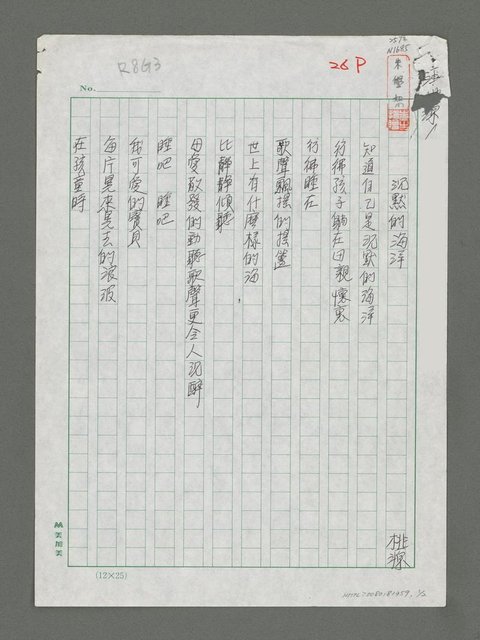 R8G3
26P
No.
沉默的海洋
桃源
知道自己是沉默的海洋
彷彿孩子躺在母親懷裏
彷彿睡在
歌聲飄搖的搖籃
世上有什麼樣的海,
比靜靜傾聽
母愛散發的動聽歌聲更令人沉醉
睡吧 睡吧
我可愛的寶貝
每片晃來晃去的浪波
在孩童時
美加美
(12×25)